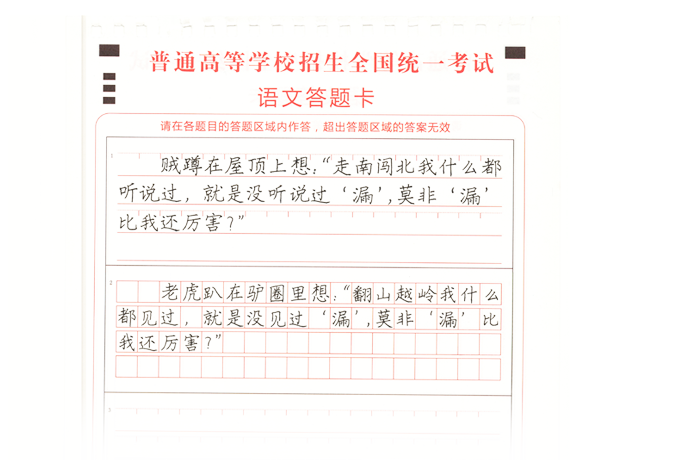 普通高等学校招生全国统一考试
语文答题卡
请在各题目的答题区域内作答，超出答题区域的答案无效
1
贼蹲在屋顶上想：“走南闯北我什么都
听说过，就是没听说过‘漏’，莫非‘漏’
比我还厉害？”
2
老虎趴在驴圈里想：“翻山越岭我什么
都见过，就是没见过‘漏’，莫非‘漏’比
我还厉害？”